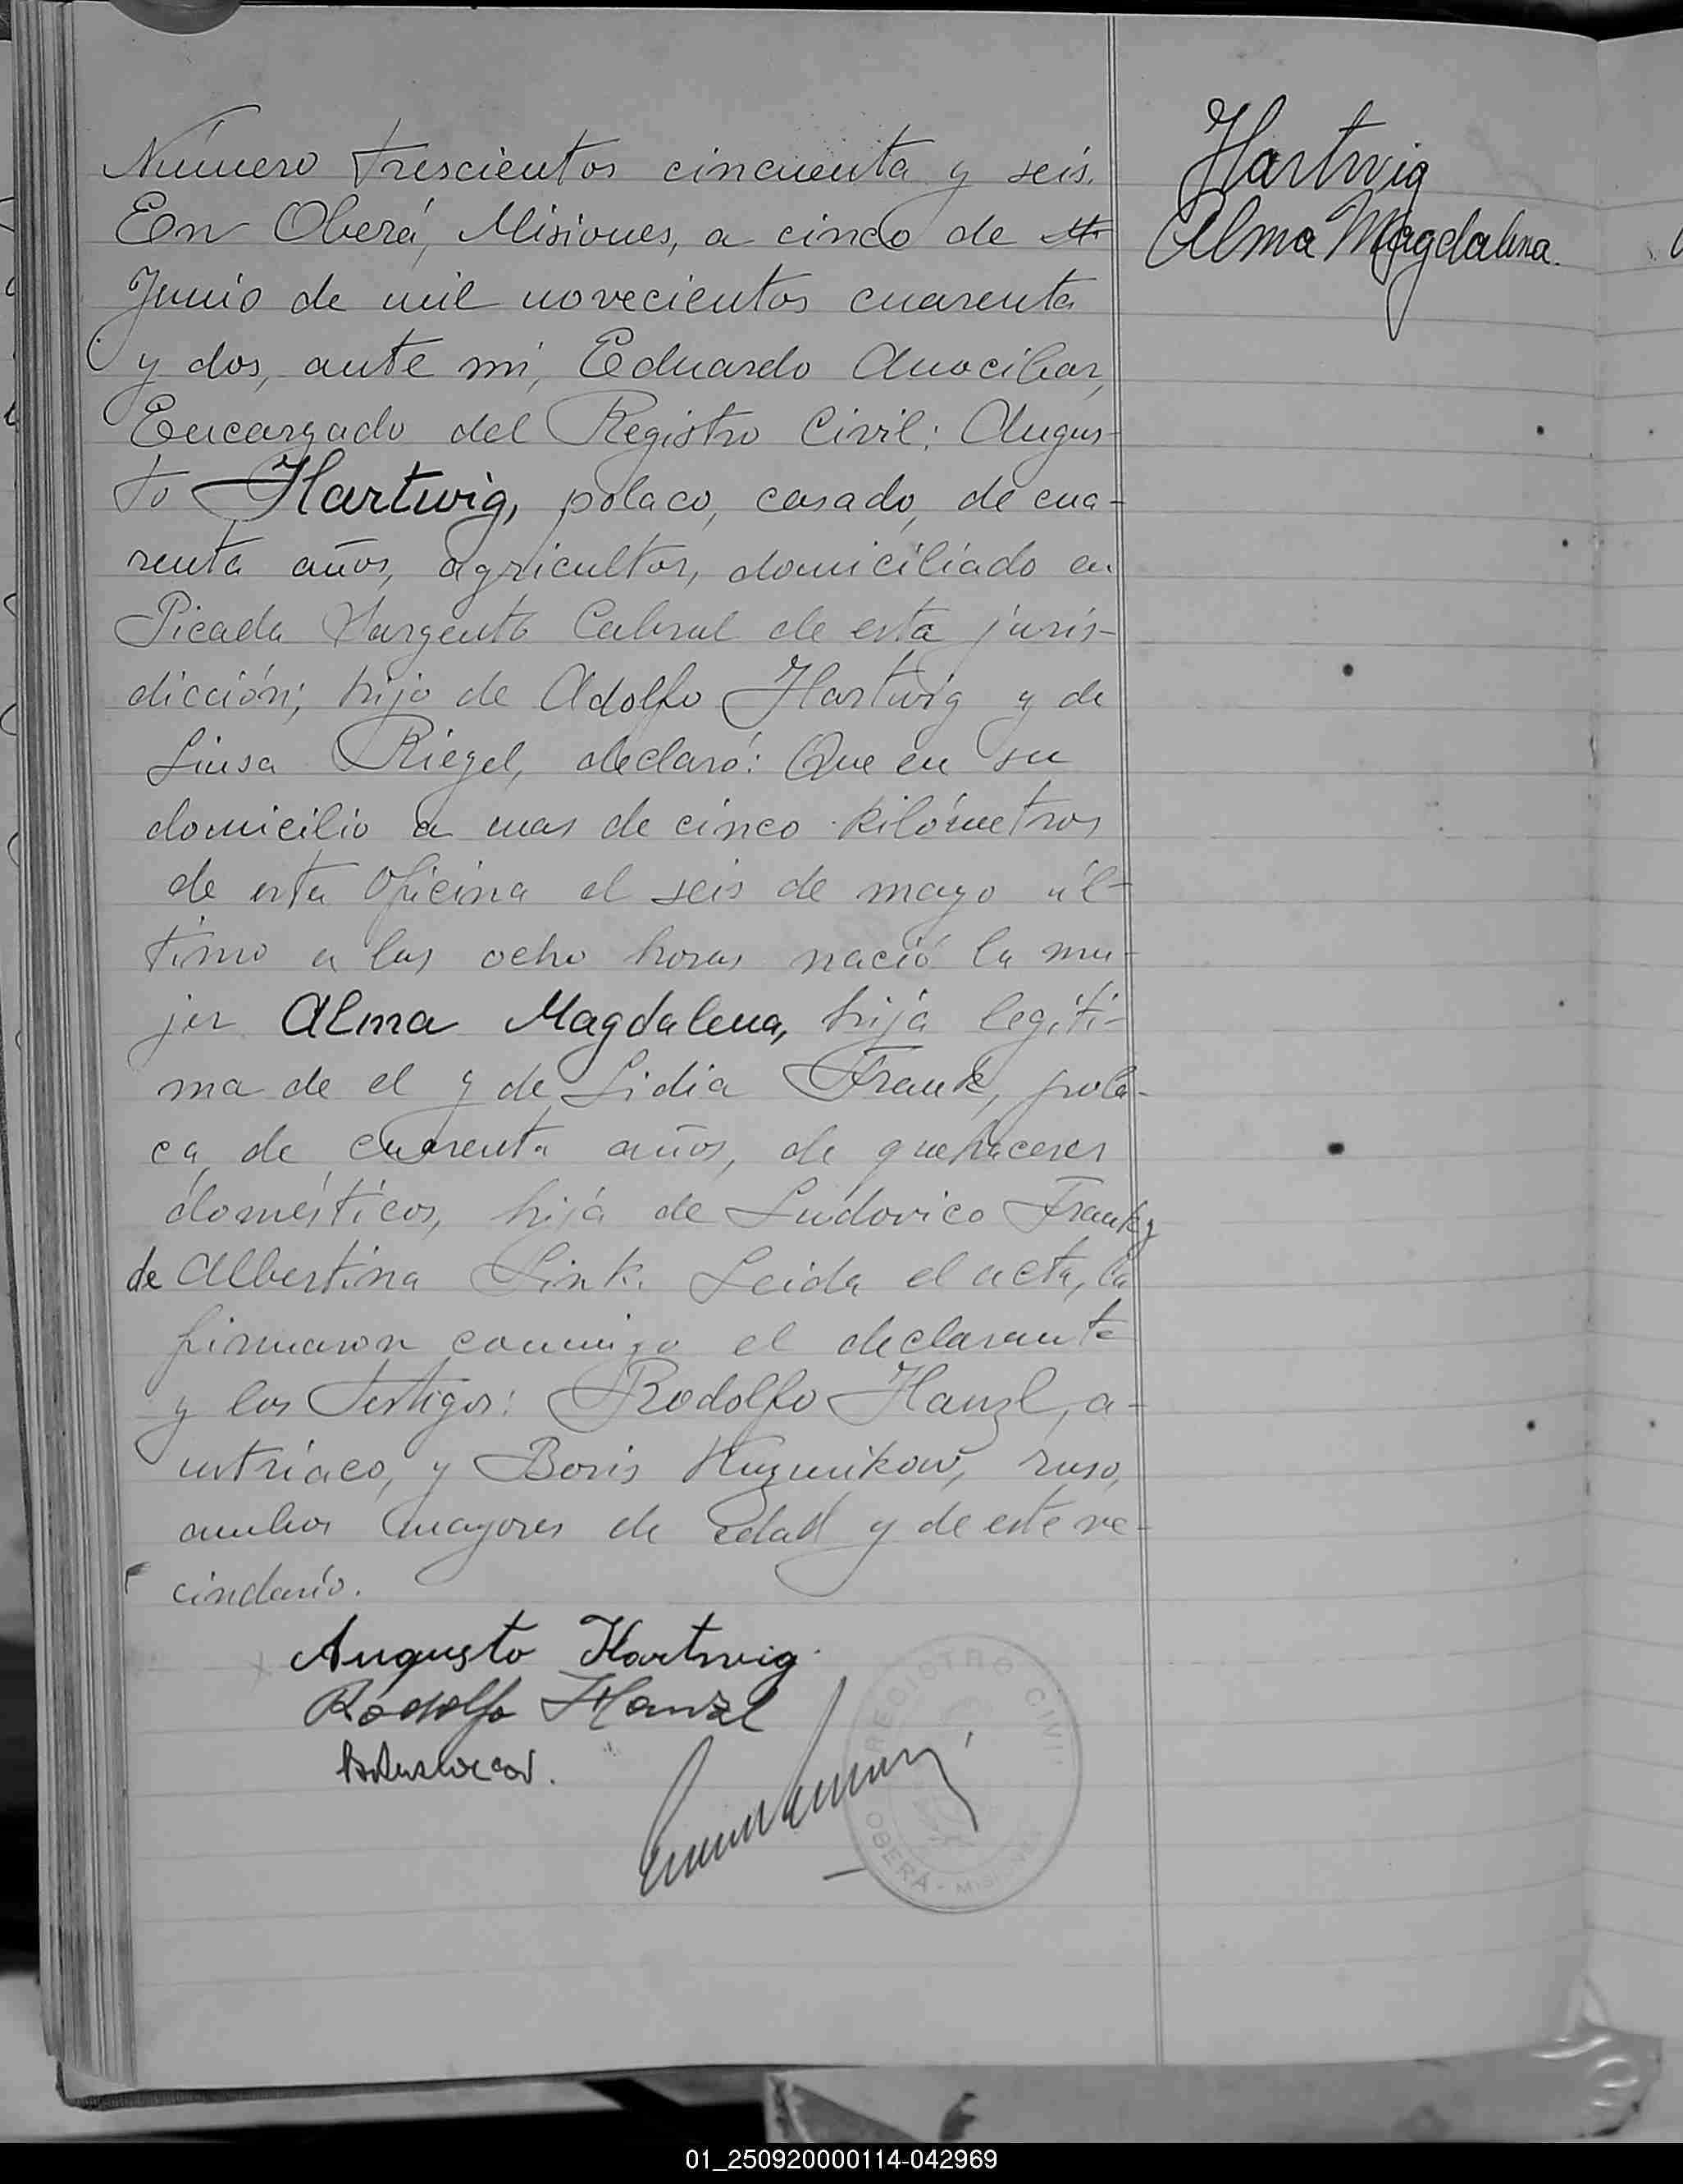 Número trescientos cincuenta y seis.
En Oberá, Misiones, a cinco de
Junio de mil novecientos cuarenta
y dos, ante mi, Eduardo Anocibar,
Encargado del Registro Civil: Augus-
to Hartwig, polaco, casado, de cua-
renta años, agricultor, domiciliado en
Picada Sargento Cabral de esta juris-
dicción; hijo de Adolfo Hartwig y de
Luisa Riegel, declaró: Que en su
domicilio a mas de cinco kilómetros
de esta Oficina el seis de mayo úl-
timo a las ocho horas nació la mu-
jer Alma Magdalena, hija legiti-
ma de el y de Lidia Frank, pola-
ca, de cuarenta años, de quehaceres
domésticos, hija de Ludovico Frank y
de Albertina Link. Leida el acta, la
firmaron conmigo el declarante
y los testigos: Rodolfo Hanzl, a-
ustriaco, y Boris Kuzmikow, ruso,
ambos mayores de edad y de este ve-
cindario.
Augusto Hartwig
Rodolfo Hanzl
REGISTRO CIVIL
OBERÁ - MISIONES
Hartwig
Alma Magdalena.
01_250920000114-042969